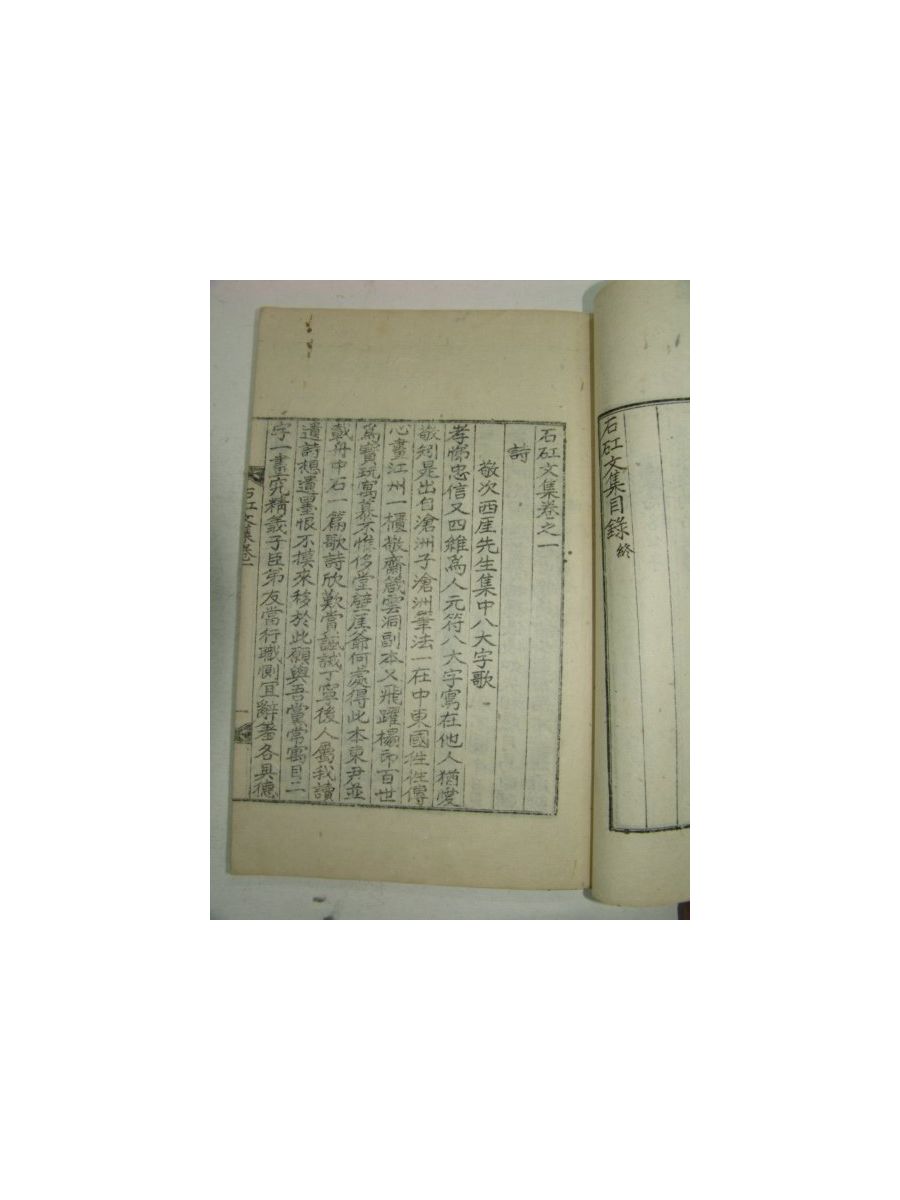 石矼文集目錄 終
石矼文集卷之一
詩
敬次西厓先生集中八大字歌
孝悌忠信又四維爲人元符八大字寫在他人猶愛
敬矧是出自滄洲子滄洲筆法一在中東國性性傳
心畫江州一櫃敬齋箴雲洞副本又飛躍榻印百世
爲寶玩寓慕不惟侈堂壁厓爺何處得此本東尹並
載舟中石一篇歌詩欣歎嘗誠誠丁寧後人屬我讀
遺詩想遺墨恨不摸來移於此願與吾黨常寓目二
字一畫究精義子臣弟友當行職惻宜辭羞各具德
石矼文集卷一